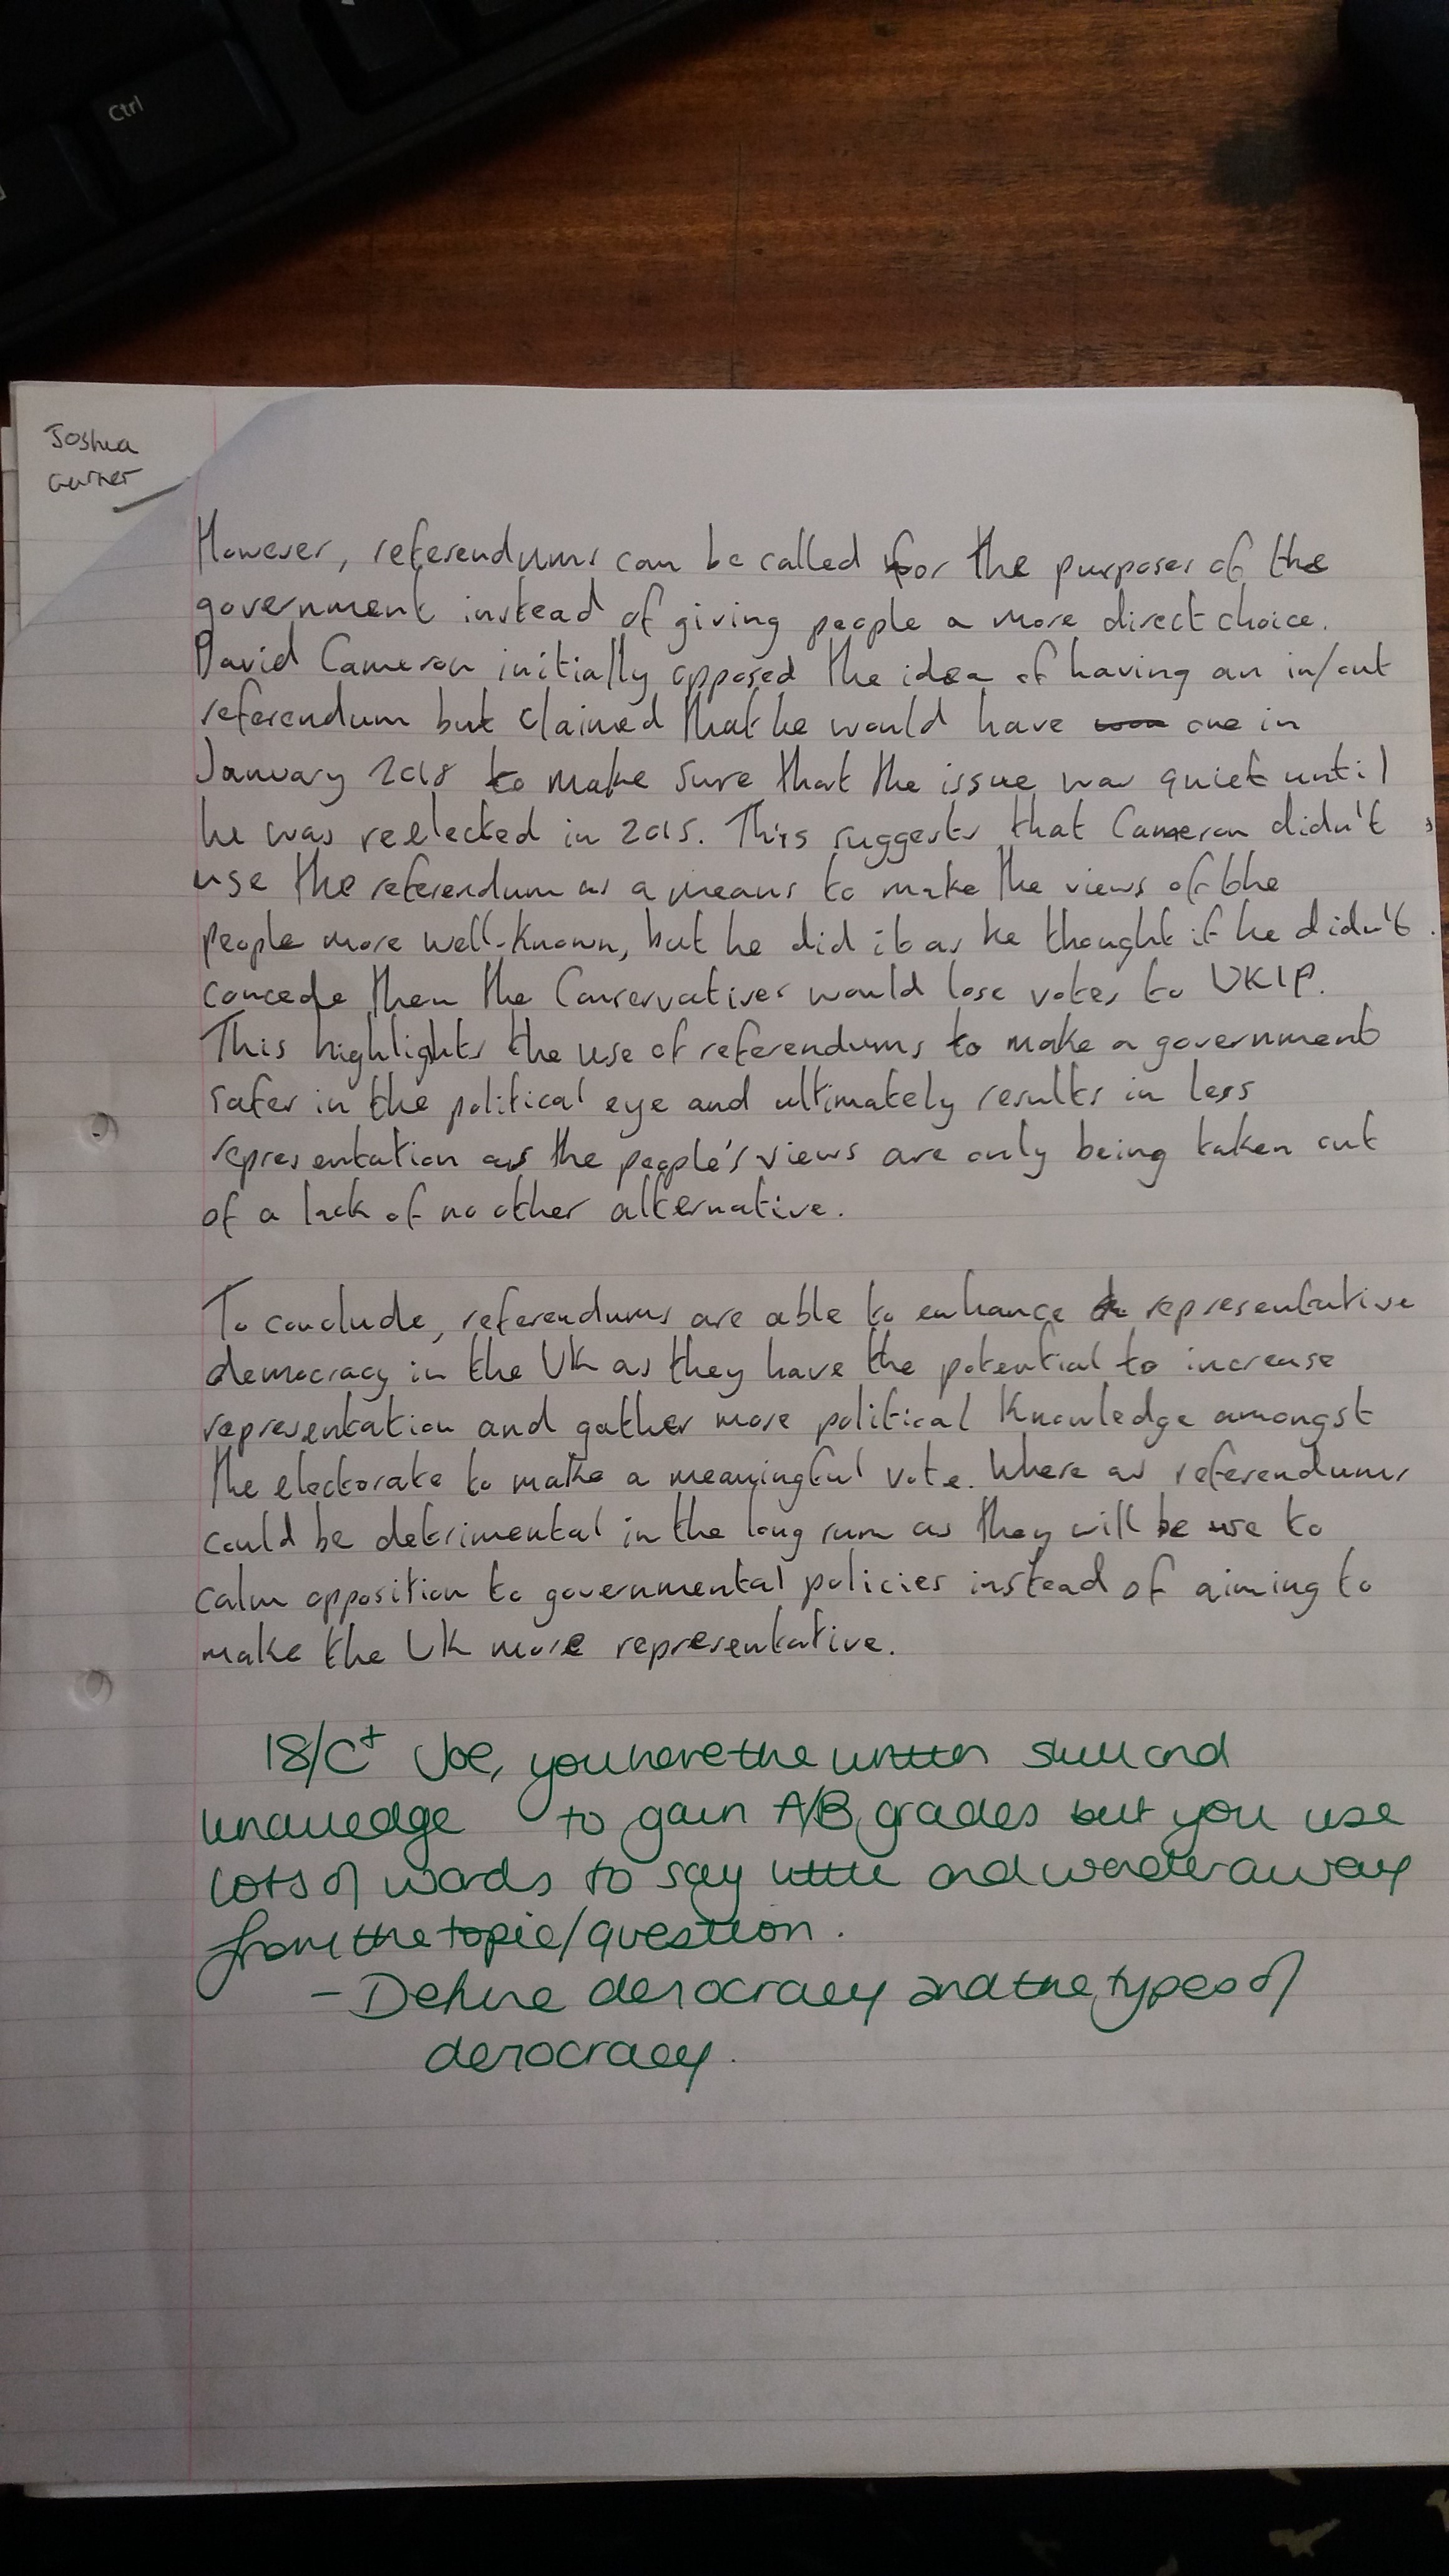 Ctrl
Joshua
Garner
However, referendums can be called for the purposes of the
government instead of giving people a more direct choice.
David Cameron initially opposed the idea of having an in/out
referendum but claimed that he would have one in
January 2018 to make sure that the issue was quiet until
he was reelected in 2015. This suggests that Cameron didn't
use the referendum as a means to make the views of the
people more well-known, but he did it as he thought if he didn't
concede then the Conservatives would lose votes to UKIP.
This highlights the use of referendums to make a government
safer in the political eye and ultimately results in less
representation as the people's views are only being taken out
of a lack of no other alternative.
To conclude, referendums are able to enhance representative
democracy in the UK as they have the potential to increase
representation and gather more political knowledge amongst
the electorate to make a meaningful vote. Where as referendums
could be detrimental in the long run as they will be use to
calm opposition to governmental policies instead of aiming to
make the UK more representative.
18/C+ Joe, you have the written skill and
knowledge to gain A/B grades but you use
lots of words to say little and wander away
from the topic/question.
- Define democracy and the types of
democracy.